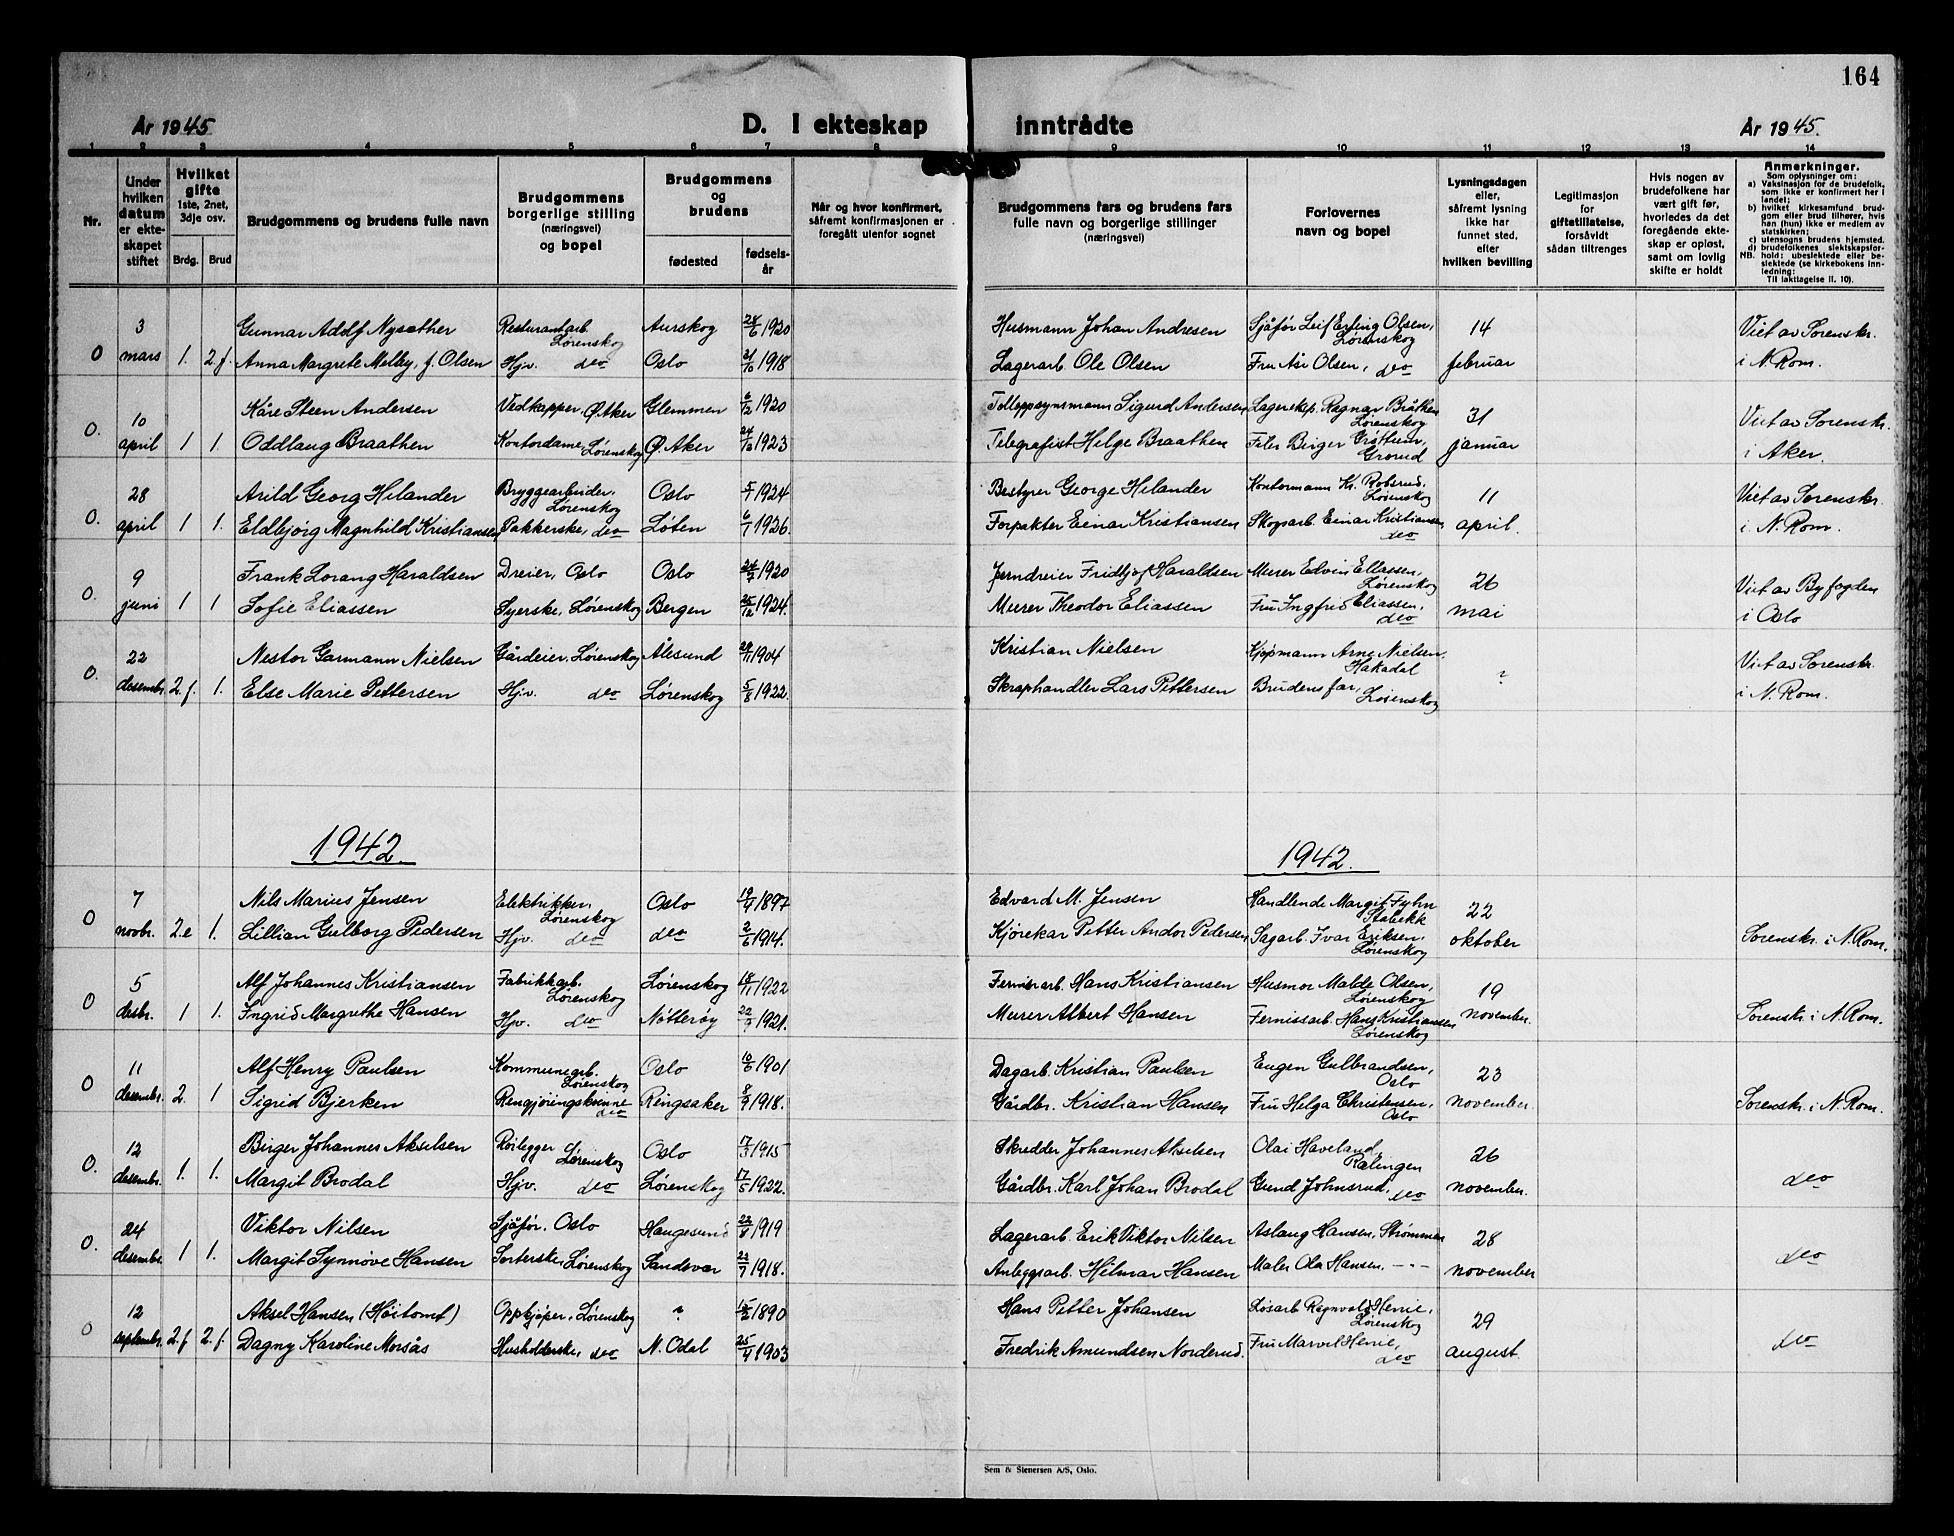 164
År 1945
D. I ekteskap inntrådte
År 1945.
1 2 3 4 5 6 7 8 9 10 11 12 13 14
Nr.
Under hvilken datum er ekteskapet stiftet
Hvilket gifte 1ste, 2net, 3dje osv.
Brdg. Brud
Brudgommens og brudens fulle navn
Brudgommens borgerlige stilling (næringsvei) og bopel
Brudgommens og brudens
fødested
fødselsår
Når og hvor konfirmert, såfremt konfirmasjonen er foregått utenfor sognet
Brudgommens fars og brudens fars fulle navn og borgerlige stillinger (næringsvei)
Forlovernes navn og bopel
Lysningsdagen eller, såfremt lysning ikke har funnet sted, efter hvilken bevilling
Legitimasjon for giftetillatelse, forsåvidt sådan tiltrenges
Hvis nogen av brudefolkene har vært gift før, hvorledes da det foregående ekteskap er opløst, samt om lovlig skifte er holdt
Anmerkninger.
Som oplysninger om:
a) Vaksinasjon for de brudefolk, som ikke er konfirmert her i landet;
b) hvilket kirkesamfund brudgom eller brud tilhører, hvis han (hun) ikke er medlem av statskirken;
c) utensogns brudens hjemsted.
d) brudefolkenes slektskapsforhold: ubeslektede eller beslektede (se kirkebokens innledning:
NB.
Til iakttagelse II. 10).
3 Gunnar Adolf Nysæther Resturantarb. Lørenskog Aurskog 24/6 1920 Husmann Johan Andresen Sjåfør Leif Erling Olsen, Lørenskog 14 Viet av Sorenskr.
0 mars 1. 2 f. Anna Margrete Melby, f. Olsen Hjv. deo Oslo 21/10 1918 Lagerarb. Ole Olsen Fru Åse Olsen, deo februar i N. Rom.
10 Kåre Steen Andersen Vedkapper, Ø. Aker Glemmen 6/12 1920 Tolloppsynsmann Sigurd Andersen Lagereksp. Ragnar Bråthen Lørenskog 31 Viet av Sorenskr.
0. april 1 1. Oddlaug Braathen Kontordame, Lørenskog Ø. Aker 1923 Telegrafist Helge Braathen Filer Birger Grorud januar i Aker.
28 Arild Georg Helander Bryggearbeider, Lørenskog Oslo 5/7 1924 Bestyrer George Helander Kontormann Kr. Robsrud, Lørenskog 11 Viet av Sorenskr.
0. april 1 1. Eldbjørg Magnhild Kristiansen Pakkerske, deo Løten 6/1 1926. Forpakter Einar Kristiansen Skogsarb. Einar Kristiansen deo april. i. N. Rom.
9 Frank Lorang Haraldsen Dreier, Oslo Oslo 24/2 1920 Jerndreier Fridtjof Haraldsen Murer Edvin Eliassen, Lørenskog 26 Viet av Byfogden
0. juni 1 1 Sofie Eliassen Syerske, Lørenskog Bergen 25/12 1924. Murer Theodor Eliassen Fru Ingfrid Eliassen, deo mai i Oslo
22 Nestor Garmann Nielsen Gårdeier, Lørenskog Ålesund 1904 Kristian Nielsen Kjøpmann Arne Nielsen Hakadal ? Viet av Sorenskr.
0. desembr. 2. f. 1. Else Marie Pettersen Hjv. deo Lørenskog 5/8 1922. Skraphandler Lars Pettersen Brudens far, Lørenskog i N. Rom.
1942. 1942.
7 Nils Marius Jensen Elektrikker, Lørenskog Oslo 1897 Edvard M. Jensen Handlende Margit Fyhn Stabekk 22
0 novbr. 2. e 1. Lillian Gulborg Pedersen Hjv. deo deo 2/6 1914. Kjørekar Petter Andor Pedersen Sagarb. Ivar Eriksen, Lørenskog oktober Sorenskr. i N. Rom.
5 Alf Johannes Kristiansen Fabrikkarb. Lørenskog Lørenskog 18/11 1922 Fernisarb. Hans Kristiansen Husmor Malde Olsen, Lørenskog 19
0 desbr. 1 1. Ingrid Margrethe Hansen Hjv. deo Nøtterøy 22/9 1921. Murer Albert Hansen Fernissarb. Hans Kristiansen Lørenskog november. Sorenskr. i N. Rom.
11 Alf Henry Paulsen Kommunearb. Lørenskog Oslo 1901 Dagarb. Kristian Paulsen Eugen Gulbrandsen, Oslo 23
0 desembr. 2. 1 Sigrid Bjerken Rengjøringskvinne deo Ringsaker 8/9 1918. Gårdbr. Kristian Hansen Fru Helga Christensen, Oslo november. Sorenskr. i N. Rom.
12 Birger Johannes Akselsen Rørlegger Lørenskog Oslo 17/3 1915 Skredder Johannes Akselsen Olai Haveland, Rælingen 26
0. desembr. 1. 1. Margit Brodal Hjv. deo Lørenskog 17/5 1922. Gårdbr. Karl Johan Brodal Gund Johnsrud, deo november. deo
24 Viktor Nilsen Sjåfør, Oslo Haugesund 22/8 1919 Lagerarb. Erik Viktor Nilsen Aslaug Hansen, Strømmen 28
0. desembr. 1 1. Margit Synnøve Hansen Sorterske, Lørenskog Sandsvær 22/7 1918. Anleggsarb. Hilmar Hansen Maler Ola Hansen, - " - november deo
12 Aksel Hansen (Høitomt) Oppkjøper, Lørenskog ? 1890 Hans Petter Johansen Løsarb Ragnvald Henie, Lørenskog 29
0 septembr. 2. f 2. f. Dagny Karoline Morsås Husholderske, deo N. Odal 25/4 1903 Fredrik Amundsen Norderud. Fru Marvel Henie, deo august. deo
Sem & Stenersen A/S, Oslo.